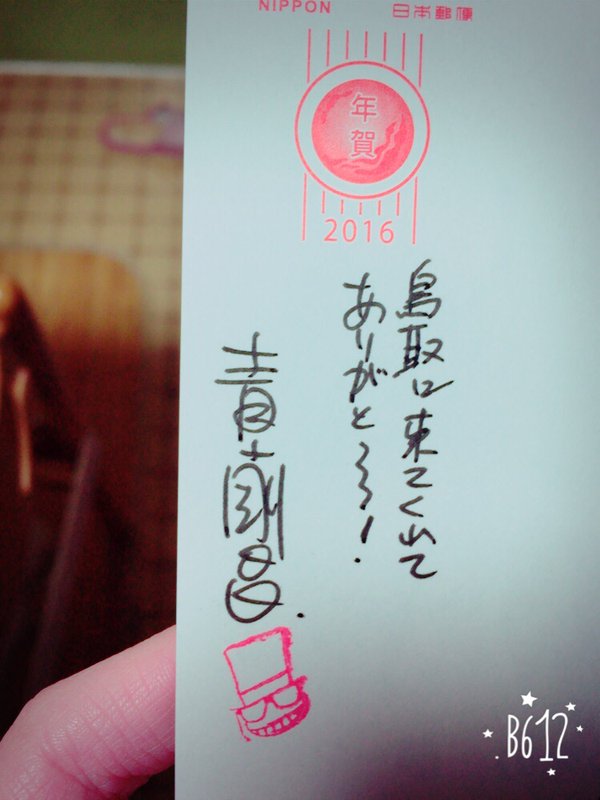 NIPPON 日本郵便
年賀
2016
鳥取に来てくれて
ありがと〜〜!
青山剛昌.
B612